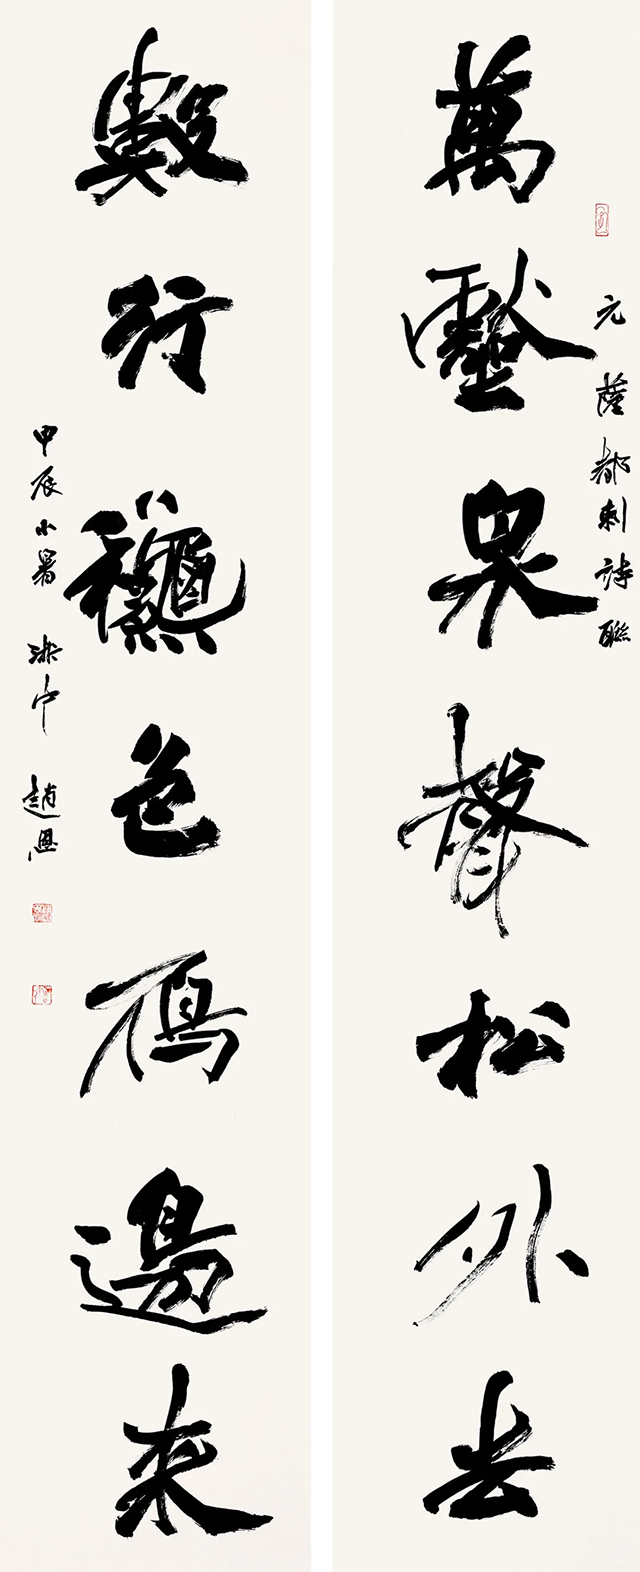 元薩都剌詩聯
萬壑泉聲松外去
數行龝色鴈邊來
甲辰小暑 中 趙